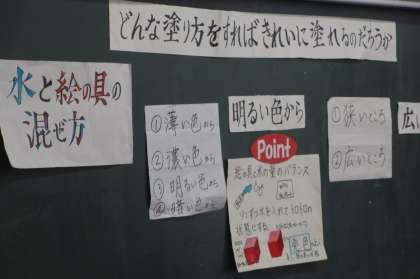 どんな塗り方をすればきれいに塗れるのだろうか
水と絵の具の
混ぜ方
①薄い色から
②濃い色から
③明るい色から
④暗い色から
明るい色から
Point
絵の具と水の量のバランス
状態にする
①狭いところ
②広いところ
広い